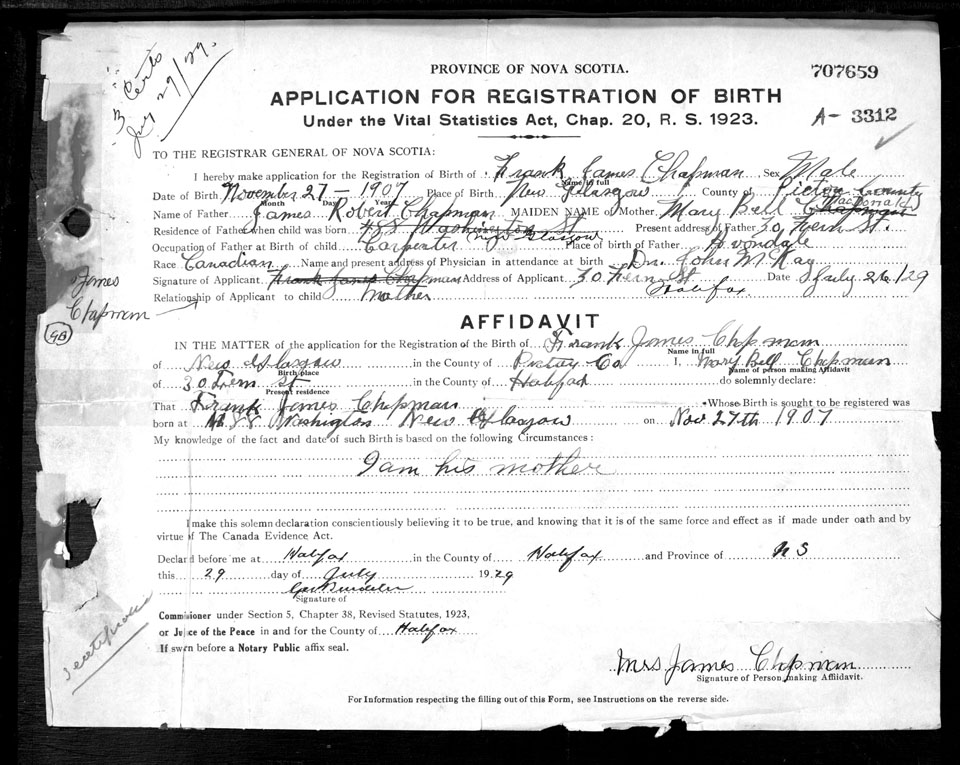 3 Certs
July 29/29.
PROVINCE OF NOVA SCOTIA.
707659
APPLICATION FOR REGISTRATION OF BIRTH
Under the Vital Statistics Act, Chap. 20, R. S. 1923.
A- 3312
TO THE REGISTRAR GENERAL OF NOVA SCOTIA:
I hereby make application for the Registration of Birth of Frank James Chapman Sex Male
Name in full
Date of Birth November 27 - 1907 Place of Birth New Glasgow County of Pictou County
Month Day Year
Name of Father James Robert Chapman MAIDEN NAME of Mother Mary Bell Chapman (MacDonald)
Residence of Father when child was born Washington St Present address of Father 30 Fern St.
New Glasgow
Occupation of Father at Birth of child Carpenter Place of birth of Father Avondale
Race Canadian Name and present address of Physician in attendance at birth Dr. John McKay
Signature of Applicant Frank James Chapman Address of Applicant 30 Fern St Date July 26/29
Halifax
James
Chapman
Relationship of Applicant to child mother
GB
AFFIDAVIT
IN THE MATTER of the application for the Registration of the Birth of Frank James Chapman
Name in full
of New Glasgow in the County of Pictou Co I, Mary Bell Chapman
Birth place Name of person making Affidavit
of 30 Fern St in the County of Halifax do solemnly declare:
Present residence
That Frank James Chapman Whose Birth is sought to be registered was
born at Washington New Glasgow on Nov 27th 1907
My knowledge of the fact and date of such Birth is based on the following Circumstances:
I am his mother
I make this solemn declaration conscientiously believing it to be true, and knowing that it is of the same force and effect as if made under oath and by
virtue of The Canada Evidence Act.
Declared before me at Halifax in the County of Halifax and Province of N S
this 29 day of July 1929
Signature of
Commissioner under Section 5, Chapter 38, Revised Statutes, 1923,
or Justice of the Peace in and for the County of Halifax
If sworn before a Notary Public affix seal.
Mrs James Chapman
Signature of Person making Affidavit.
For Information respecting the filling out of this Form, see Instructions on the reverse side.